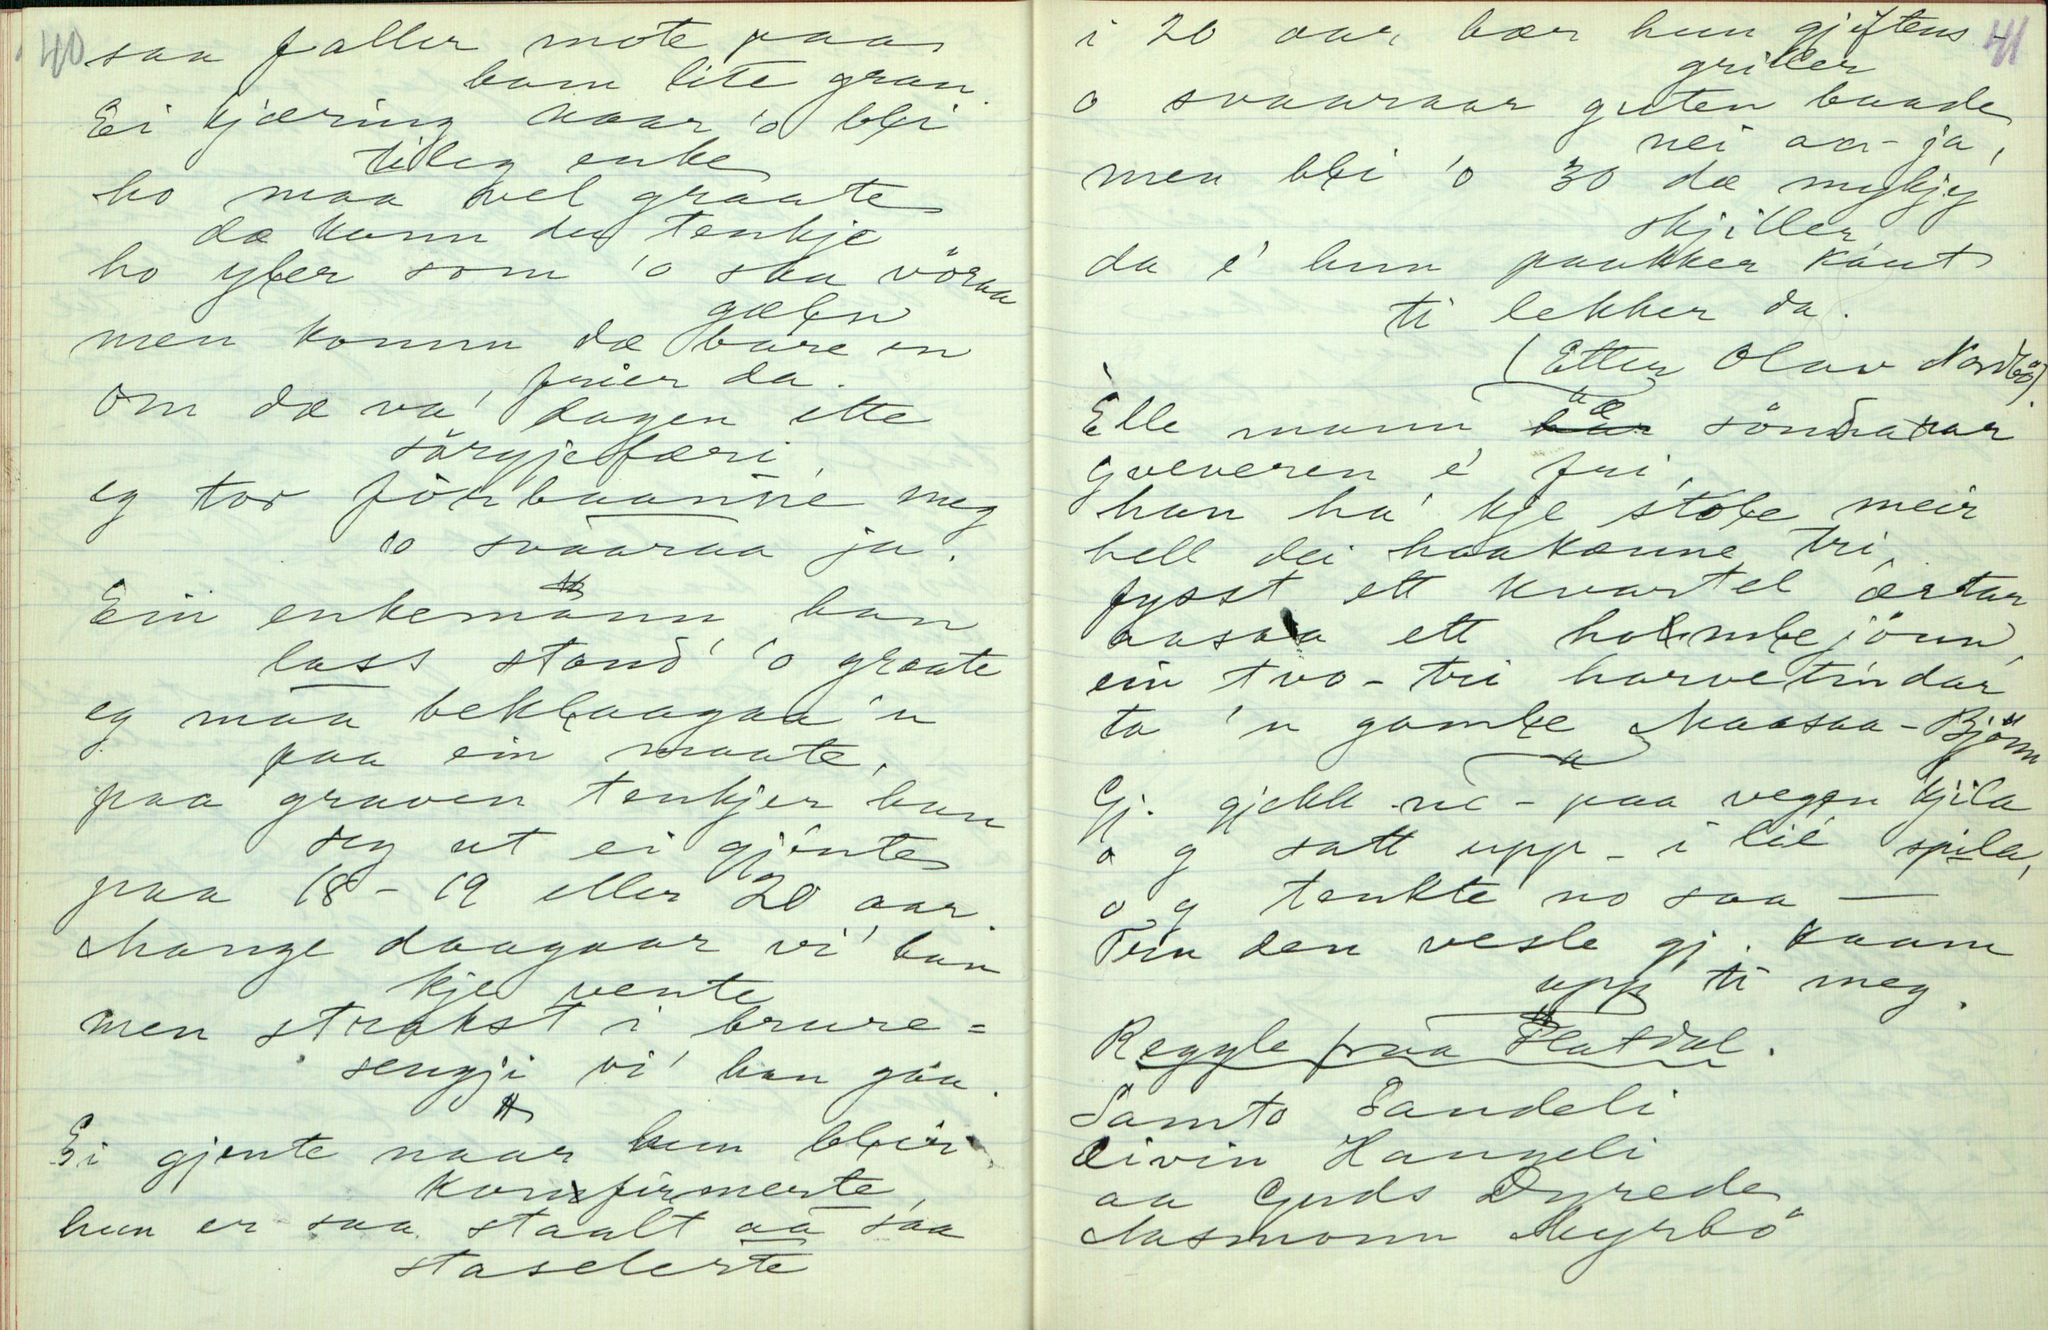 40
saa faller mote paa
ham lite gran.
Ei kjæring naar 'o bli
tileg enke
ho maa vel graate
dæ kann du tenkje
ho yler som 'o ska vöraa
gælen
men komm dæ bare en
frier da.
Om dæ va' dagen ette
sörgjefæri
eg tor förbaanne meg
'o svaaraa ja.
Ein enkemann han
lass stand' 'o graate
eg maa beklaagaa 'n
paa ein maate,
paa graven tenkjer han
seg ut ei gjente
paa 18 - 19 eller 20 aar
Mange daagaar vi' han
kje vente
men strakst i brure-
sengji vi' han gaa.
Ei gjente naar hun bleir
konfirmerte,
hun er saa staalt aa saa
staselerte
41
i 20 aar bær hun gjiftens-
griller
o svaaraar guten baade
nei aa - ja,
men bli 'o 30 dæ mykjy
skjiller,
da e' hun paakker kaut
ti lekker da.
(Etter Olav Nordbö).
Elle mann sönnarar
gveveren e' fri,
han ha' kje stole meir
hell dei haakænne tri,
fysst ett kvartel ærtar
aasaa ett holmbejönn,
ein tvo - tri harvetindar
ta 'n gamle Maasaa - Björn
Gj. gjekk ne - paa vegen kjila
o g satt upp - i lie spila,
o g tenkte no saa —
Tein den vesle gj. kaam
upp ti meg.
Reggle fraa Flatdal.
Samto Sandeli
Eivin Haugeli
aa Guds Dyrede
Aasmann Myrbö